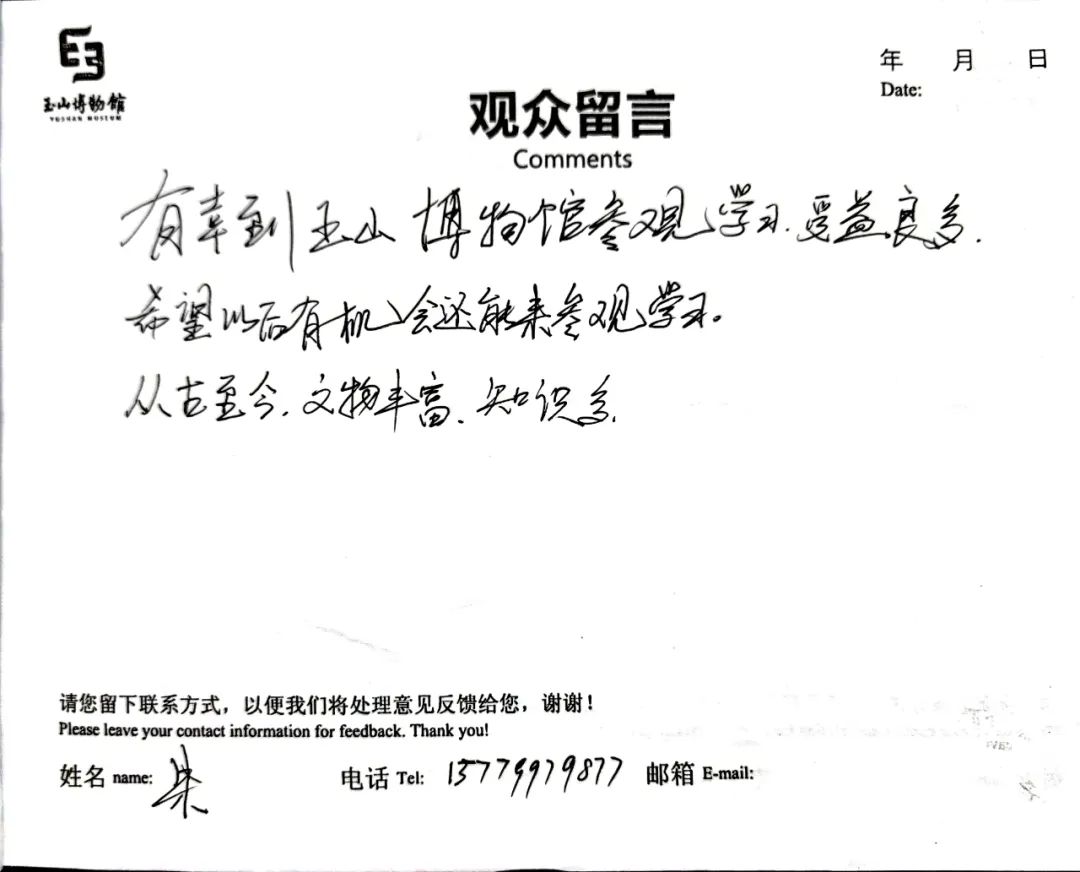 玉山博物馆
YUSHAN MUSEUM
年 月 日
Date:
观众留言
Comments
有幸到玉山博物馆参观学习.受益良多.
希望以后有机会还能来参观学习。
从古至今.文物丰富.知识多.
请您留下联系方式，以便我们将处理意见反馈给您，谢谢！
Please leave your contact information for feedback. Thank you!
姓名 name: 柴 电话 Tel: 15779979877 邮箱 E-mail: